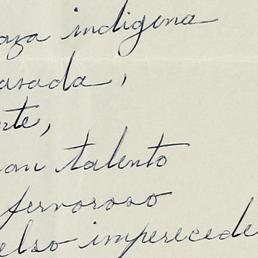 raza indigena
arada,
rte,
an talento
fervoroso
elso imperecede